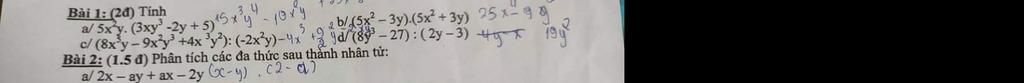 Bài 1: (2đ) Tính
a/ 5x²y. (3xy³ -2y + 5) 15x³y⁴ - 10x²y b/ (5x² – 3y).(5x² + 3y) 25x⁴ - 9y
c/ (8x³y – 9x²y³ +4x³y²): (-2x²y) -4x d/ (8y³ – 27) : ( 2y – 3)
Bài 2: (1.5 đ) Phân tích các đa thức sau thành nhân tử:
a/ 2x – ay + ax – 2y (x-y) . (2-a)